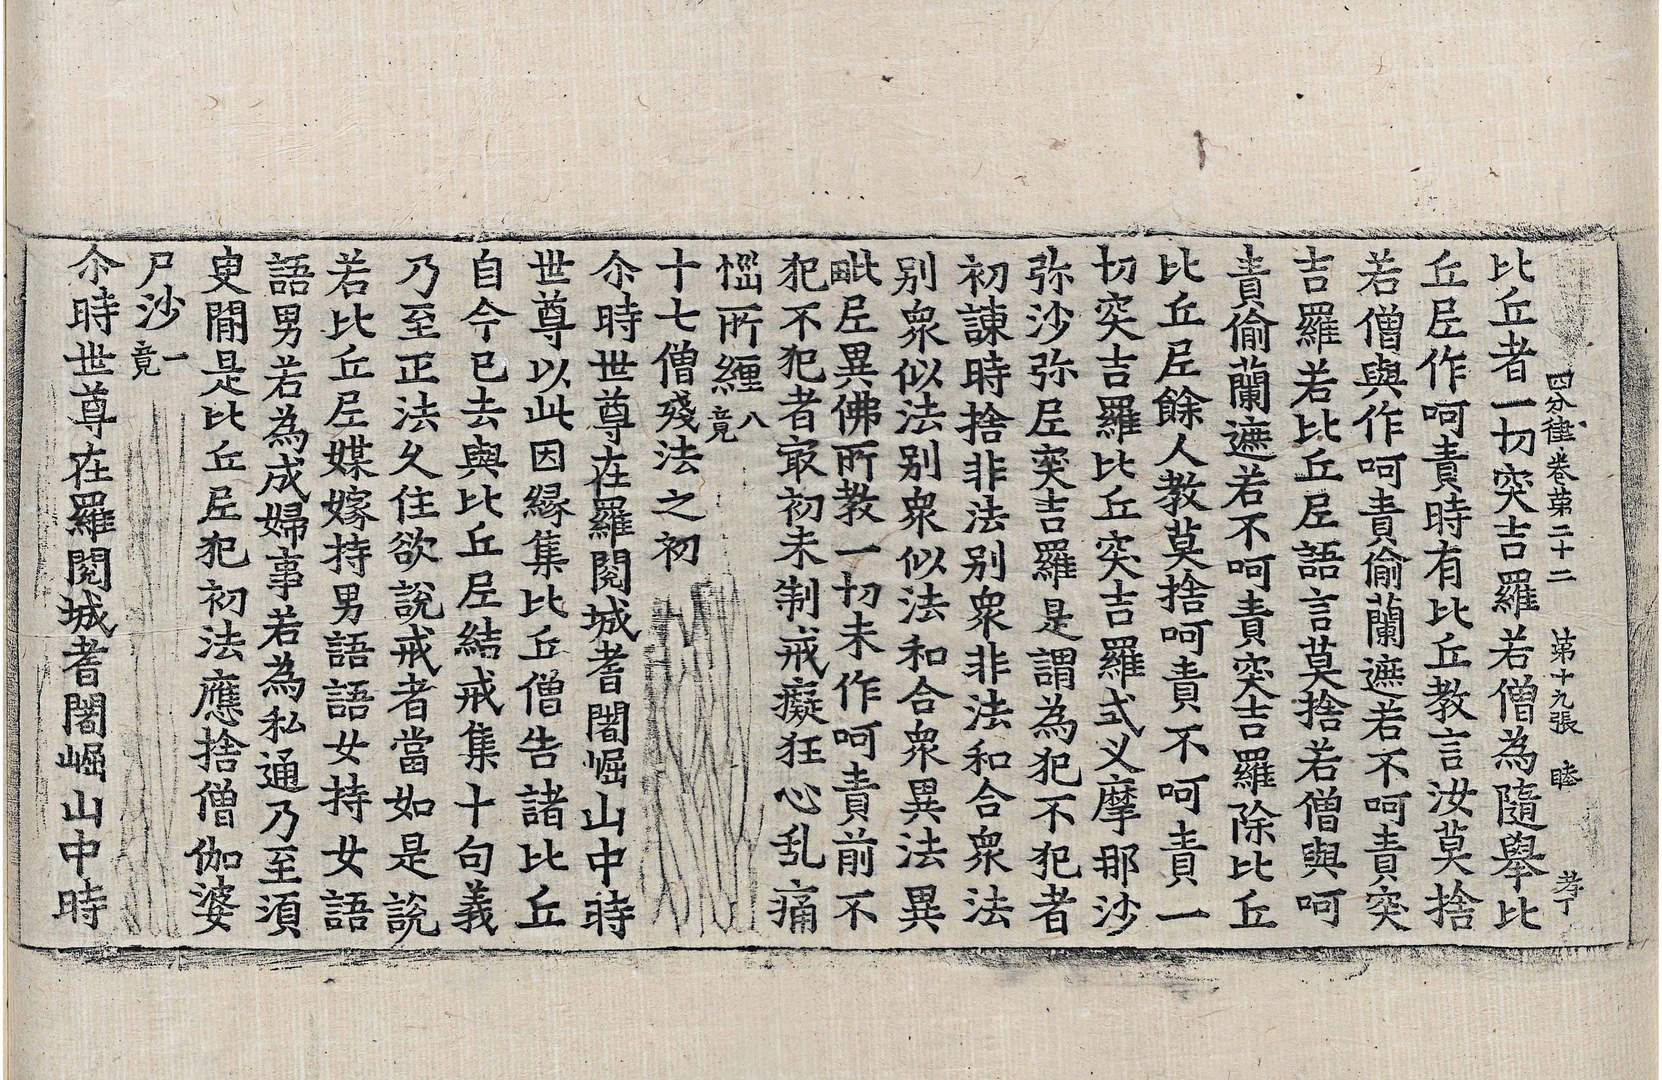 四分律卷苐二十二 苐十九張 睦 孝丁
比丘者一切突吉羅若僧為隨舉比
丘尼作呵責時有比丘教言汝莫捨
若僧與作呵責偷蘭遮若不呵責突
吉羅若比丘尼語言莫捨若僧與呵
責偷蘭遮若不呵責突吉羅除比丘
比丘尼餘人教莫捨呵責不呵責一
切突吉羅比丘突吉羅式叉摩那沙
弥沙弥尼突吉羅是謂為犯不犯者
初諫時捨非法别衆非法和合衆法
别衆似法别衆似法和合衆異法異
毗尼異佛所教一切未作呵責前不
犯不犯者㝡初未制戒癡狂心乱痛
惱所纏八竟
十七僧殘法之初
尒時世尊在羅閱城耆闍崛山中時
世尊以此因縁集比丘僧告諸比丘
自今已去與比丘尼結戒集十句義
乃至正法久住欲說戒者當如是說
若比丘尼媒嫁持男語語女持女語
語男若為成婦事若為私通乃至湏
臾閒是比丘尼犯初法應捨僧伽婆
尸沙一竟
尒時世尊在羅閱城耆闍崛山中時